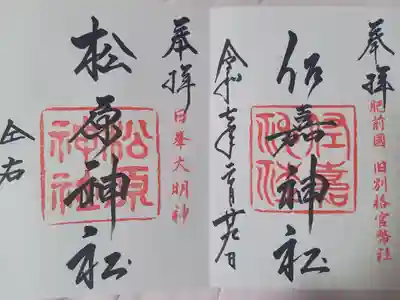 奉拝
肥前國 旧別格官幣社
佐嘉神社
佐嘉神社
令和 年二月廿 日
奉拝
日峯大明神
松原神社
松原神社
仝右